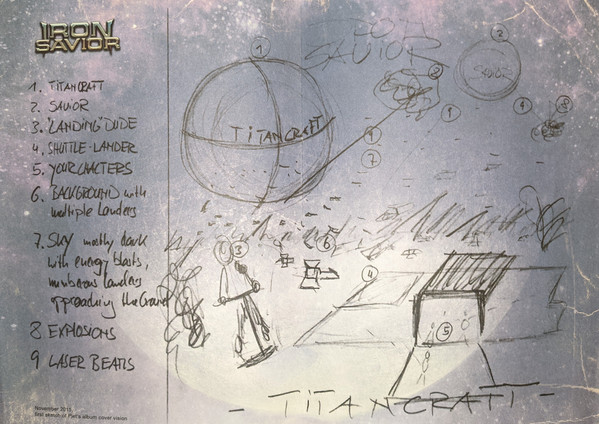 IRON
SAVIOR
1. TITANCRAFT
2. SAVIOR
3. "LANDING" DUDE
4. SHUTTLE-LANDER
5. YOUR CHACTERS
6. BACKGROUND with
multiple Landers
7. SKY mostly dark
with energy blasts,
numberous landers
approaching the Ground
8 EXPLOSIONS
9 LASER BEAMS
November 2015
first sketch of Piet's album cover vision
IRON
SAVIOR
1
TITANCRAFT
2
SAVIOR
8
9
9
8
9
7
3
6
4
5
- TITANCRAFT -